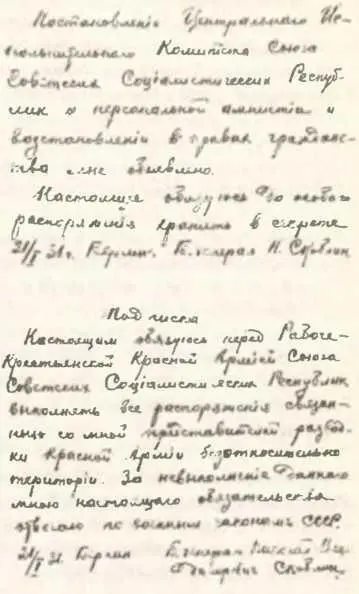 Постановленіе Центральнаго Ис-
полнительнаго Комитета Союза
Советских Соціалистических Респуб-
лик о персональной амнистіи и
возстановленіи в правах гражданс-
тва мне объявлено.
Настоящее обязуюсь до особого
распоряженія хранить в секрете
21/I 31г. Берлин. Б. генерал Н. Скоблин
Подписка
Настоящим обязуюсь перед Рабоче-
Крестьянской Красной Арміей Союза
Советских Соціалистических Республик
выполнять все распоряженія связан-
ных со мной представителей развед-
ки Красной Арміи безотносительно
територіи. За невыполненіе даннаго
мною настоящаго обязательства
отвечаю по военным законам СССР.
21/I 31. Берлин Б. генерал Николай Вла-
димірович Скоблин.